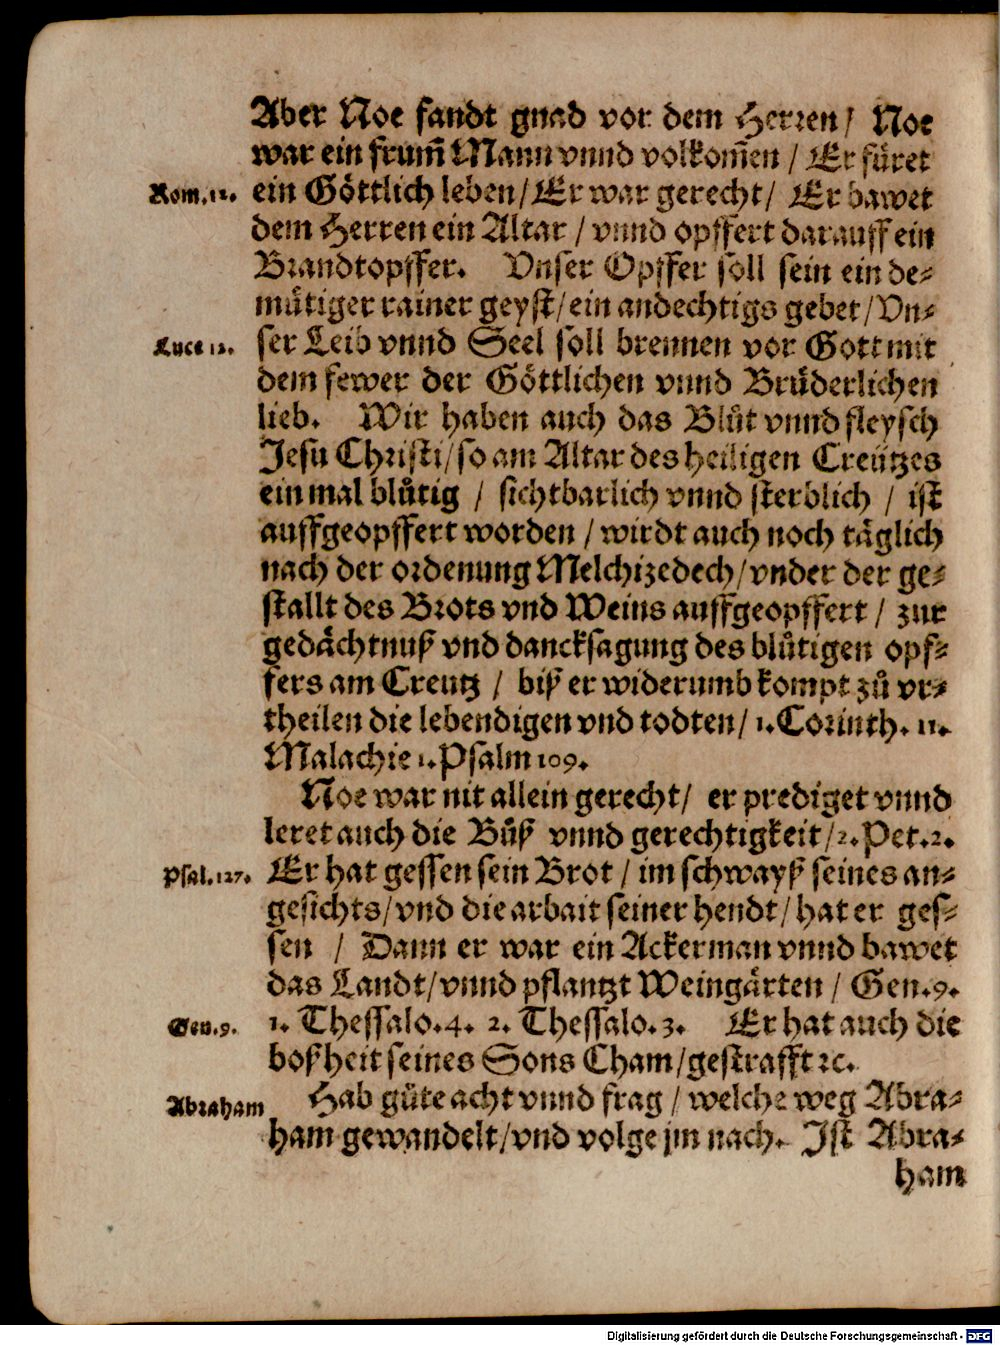 Aber Noe fandt gnad vor dem Herren / Noe
war ein frum̃ Mann vnnd volkom̃en / Er füret
Rom. 12. ein Göttlich leben / Er war gerecht / Er bawet
dem Herren ein Altar / vnnd opffert darauff ein
Brandtopffer. Vnser Opffer soll sein ein de-
mütiger rainer geyst / ein andechtigs gebet / Vn-
Luce 12. ser Leib vnnd Seel soll brennen vor Gott mit
dem fewer der Göttlichen vnnd Brüderlichen
lieb. Wir haben auch das Blůt vnnd fleysch
Jesu Christi / so am Altar des heiligen Creützes
ein mal blůtig / sichtbarlich vnnd sterblich / ist
auffgeopffert worden / wirdt auch noch täglich
nach der ordenung Melchizedech / vnder der ge-
stallt des Brots vnd Weins auffgeopffert / zur
gedächtnuß vnd dancksagung des blůtigen opf-
fers am Creutz / biß er widerumb kompt zů vr-
theilen die lebendigen vnd todten / 1. Corinth. 11.
Malachie 1. Psalm 109.
Noe war nit allein gerecht / er prediget vnnd
leret auch die Bůß vnnd gerechtigkeit / 2. Pet. 2.
Psal. 127. Er hat gessen sein Brot / im schwayß seines an-
gesichts / vnd die arbait seiner hendt / hat er ges-
sen / Dann er war ein Ackerman vnnd bawet
das Landt / vnnd pflantzt Weingärten / Gen. 9.
Gen. 9. 1. Thessalo. 4. 2. Thessalo. 3. Er hat auch die
boßheit seines Sons Cham / gestrafft ꝛc.
Abraham Hab güte acht vnnd frag / welche weg Abra-
ham gewandelt / vnd volge jm nach. Ist Abra-
ham
Digitalisierung gefördert durch die Deutsche Forschungsgemeinschaft - DFG